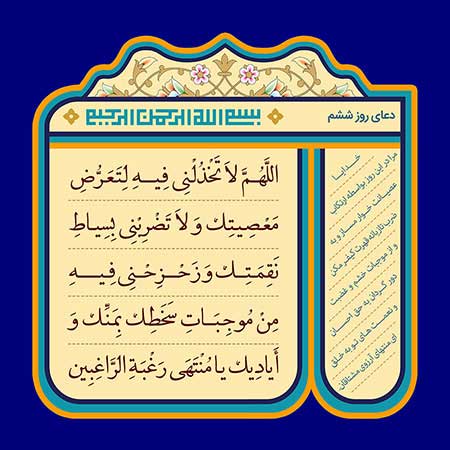 دعای روز ششم
بسم الله الرحمن الرحیم
اللَّهُمَّ لاَ تَخْذُلْنِی فِیهِ لِتَعَرُّضِ
مَعْصِیَتِكَ وَ لاَ تَضْرِبْنِی بِسِیَاطِ
نَقِمَتِكَ وَ زَحْزِحْنِی فِیهِ
مِنْ مُوجِبَاتِ سَخَطِكَ بِمَنِّكَ وَ
أَیَادِیكَ یَا مُنْتَهَی رَغْبَةِ الرَّاغِبِینَ
خدایا
مرا در این روز بواسطه ارتکاب
عصیانت خوار مساز و به
ضرب تازیانه قهرت کیفر مکن
و از موجبات خشم و غضبت
دور گردان به حق احسان
و نعمت های تو به خلق
ای منتهای آرزوی مشتاقان